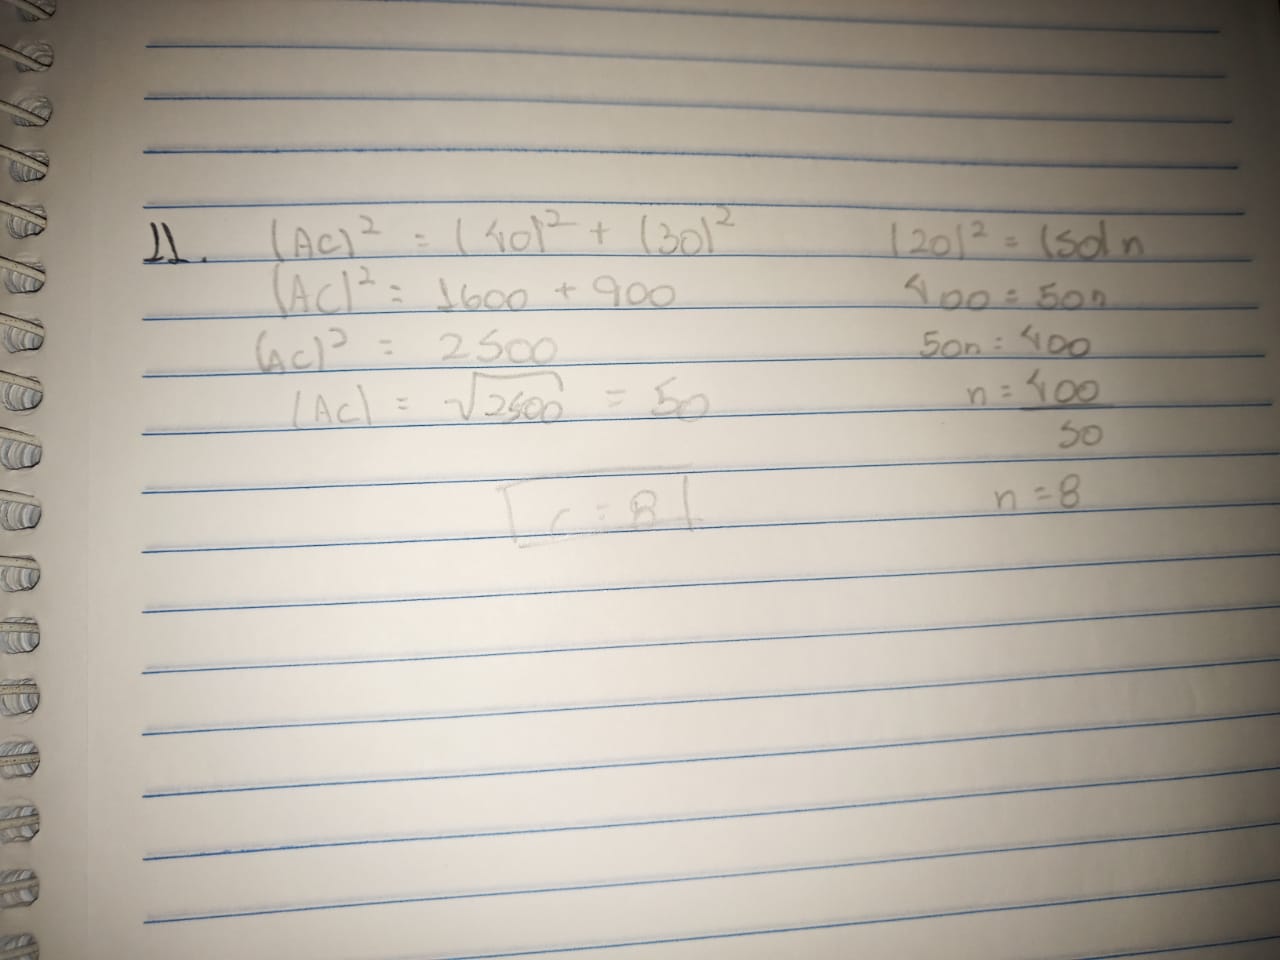 11. (AC)² = (40)² + (30)²
(AC)² = 1600 + 900
(AC)² = 2500
(AC) = √2500 = 50
C = 8
(20)² = (50)n
400 = 50n
50n = 400
n = 400
50
n = 8